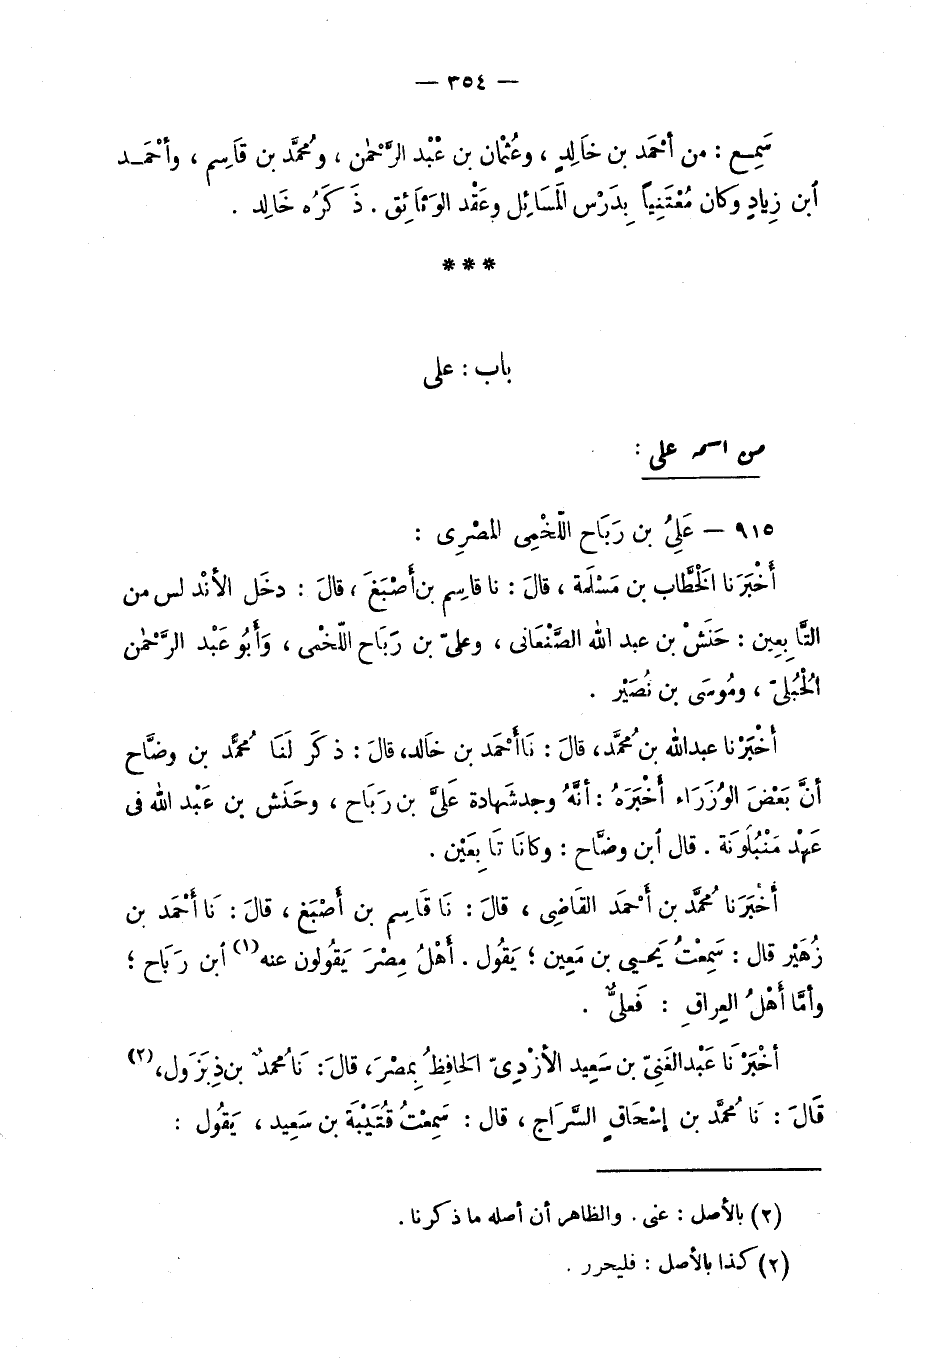 — ٣٥٤ —
سَمِـع : من أحْمَد بن خَالِدٍ ، وعُثْمان بن عَبْد الرَّحْمٰن ، ومُحمَّد بن قَاسِم ، وأحْمَـد
اَبن زِيادٍ وكان مُعْتَنِياً بِدَرْس المَسَائِل وعَقْد الوَثائِق . ذَكَرُه خَالِد .
***
باب : على
من اسمه على :
٩١٥ — عَلِىُّ بن رَبَاح اللّخْمِى المصْرِى :
أَخْبَرَنا الَخْطَّاب بن مَسْلَمَة ، قالَ : نا قاسِم بن أَصْبَغَ ، قالَ : دخَل الأنْدلس من
التَّابِعِين : حَنَشْ بن عبد الله الصَّنْعَانى ، وعلىّ بن رَبَاح اللّخْمى ، وَأَبُو عَبْد الرَّحْمٰن
الُحْبُلىّ ، ومُوسَى بن نُصَيْر .
أخْبَرْنا عبدالله بن مُحمَّد، قالَ : نَا أَحْمَد بن خَالد، قالَ : ذكَر لَنَا مُحمَّد بن وضَّاح
أنَّ بَعْضَ الوُزَرَاء أَخْبَرَهُ : أنَّهُ وجد شَهادة عَلىَّ بن رَبَاح ، وحَنَش بن عَبْد الله فى
عَهْد مَنْبُلَونَة . قال اَبن وضَّاح : وكانَا تَابِعَيْن .
أخْبَرَنا مُحمَّد بن أَحْمَد القَاضِى ، قالَ : نَا قَاسِم بن أَصْبَغ ، قالَ : نَا أَحْمَد بن
زُهَيْر قال : سَمِعْتُ يَحيى بن مَعِين ؛ يَقُول . أَهْلُ مِصْرَ يَقُولون عنه (١) اَبن رَبَاح ؛
وأمَّا أَهْلُ العِراقِ : فَعلىٌّ .
أخْبَرْنَا عَبْدالغَنِىّ بن سَعِيد الأزْدِىّ الحَافِظُ بِمصْرَ، قالَ : نَا مُحمدٌ بن ذِبَزَول، (٢)
قَالَ : نَا مُحمَّد بن إسْحَاقٍ السَّرَاج ، قال : سَمِعْتُ قُتَيْبَة بن سَعِيد ، يَقُول :
(٢) بالأصل : عنى . والظاهر أن أصله ما ذكرنا .
(٢) كذا بالأصل : فليحرر .